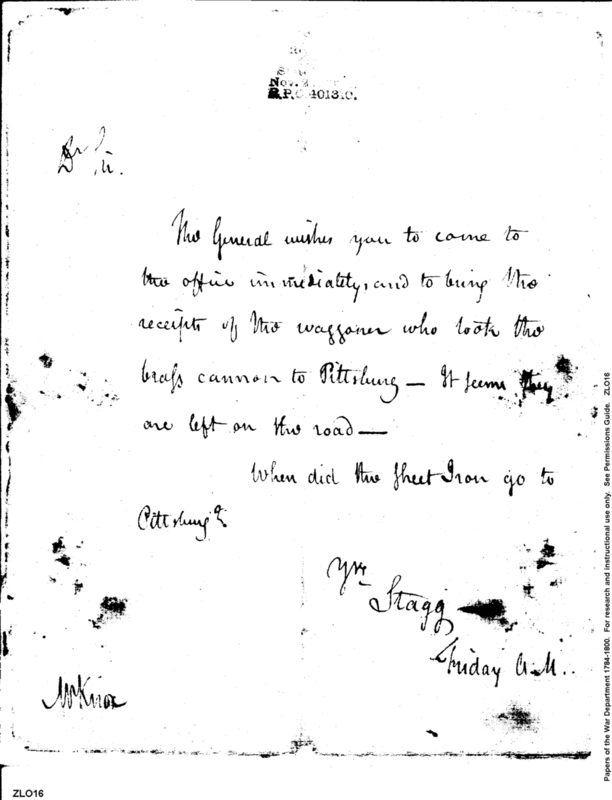 Nov. 2
R.P.O. 401310.
Dr Sir.
The General wishes you to come to
the office immediately, and to bring the
receipts of the waggoner who took the
brass cannon to Pittsburg — It seems they
are left on the road —
When did the sheet Iron go to
Pittsburg?
Yrs
Stagg
Friday A.M.
Mr Knox
Papers of the War Department 1784-1800. For research and instructional use only. See Permissions Guide. ZLO16
ZLO16